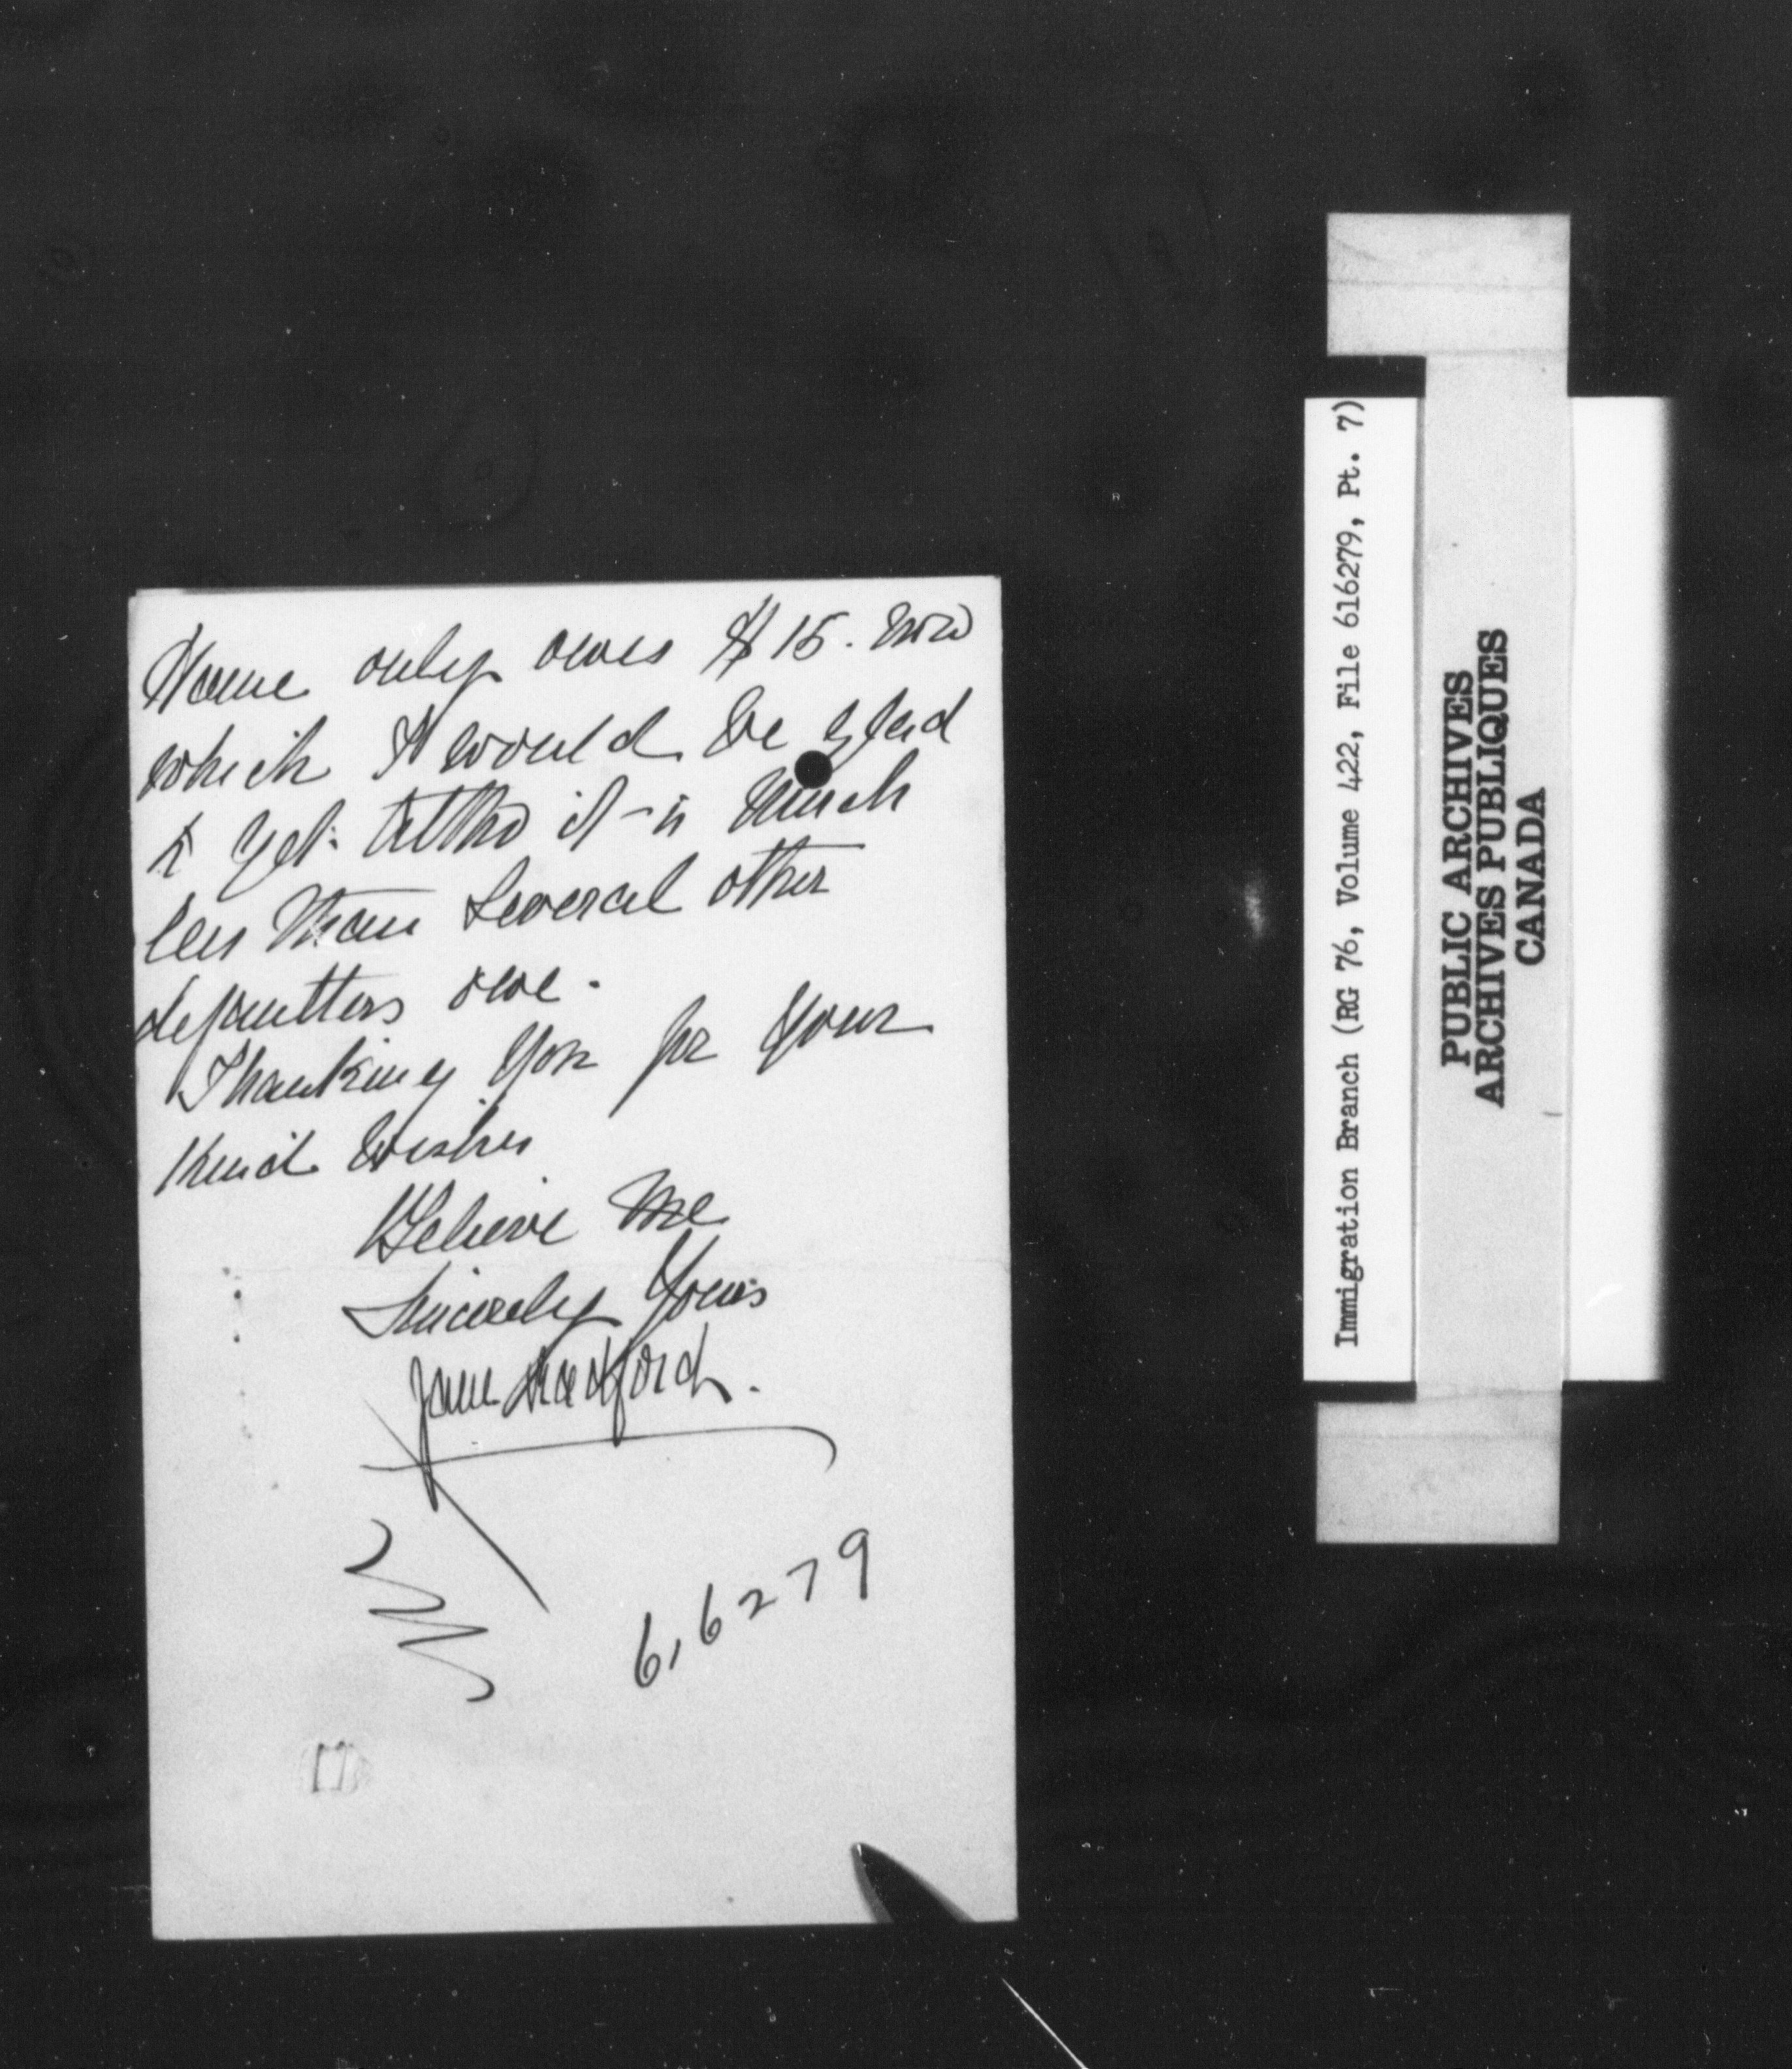 only owes $15. now
which I would be glad
to get. altho it is much
less than several other
defaulters owe.
Thanking you for your
kind wishes
Believe me
Sincerely Yours
Jane Bradford.
616279
Immigration Branch (RG 76, Volume 422, File 616279, Pt. 7)
PUBLIC ARCHIVES
ARCHIVES PUBLIQUES
CANADA